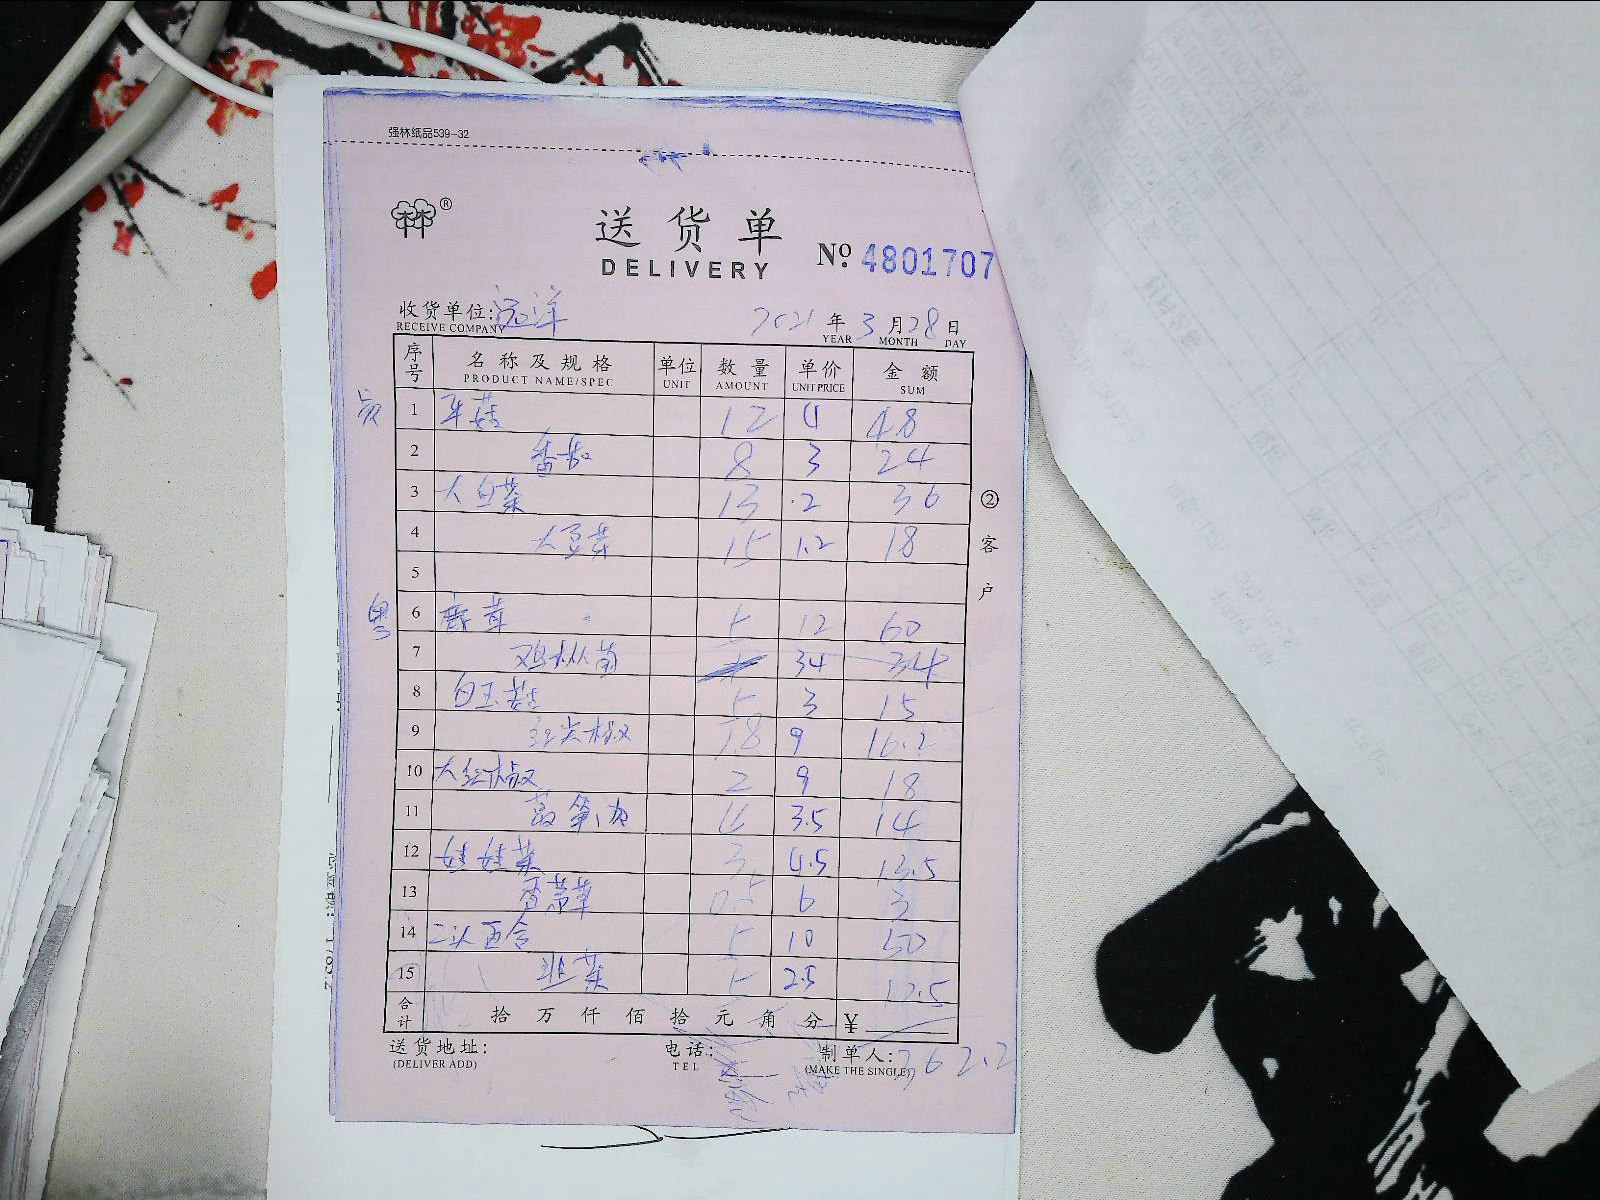 强林纸品539-32
林林®
送货单
DELIVERY
No. 4801707
收货单位: 远洋 2021年3月28日
RECEIVE COMPANY YEAR MONTH DAY
序号 名称及规格 单位 数量 单价 金额
PRODUCT NAME/SPEC UNIT AMOUNT UNIT PRICE SUM
1 平菇 12 4 48
2 番茄 8 3 24
3 大白菜 13 2 36
4 大豆芽 15 1.2 18
5
粤 6 鹿茸 5 12 60
7 鸡枞菌 34 34
8 白玉菇 5 3 15
9 红尖椒 1.8 9 16.2
10 大红椒 2 9 18
11 4 3.5 14
12 娃娃菜 3 4.5 13.5
13 香茅草 0.5 6 3
14 二头百合 5 10 50
15 韭菜 5 2.5 12.5
合计 拾万仟佰拾元角分 ¥
送货地址: 电话: 制单人: 362.2
(DELIVER ADD) TEL (MAKE THE SINGLE)
②客户